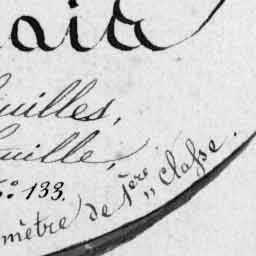 uilles,
uille,
º 133.
mètre de 1ère Classe.